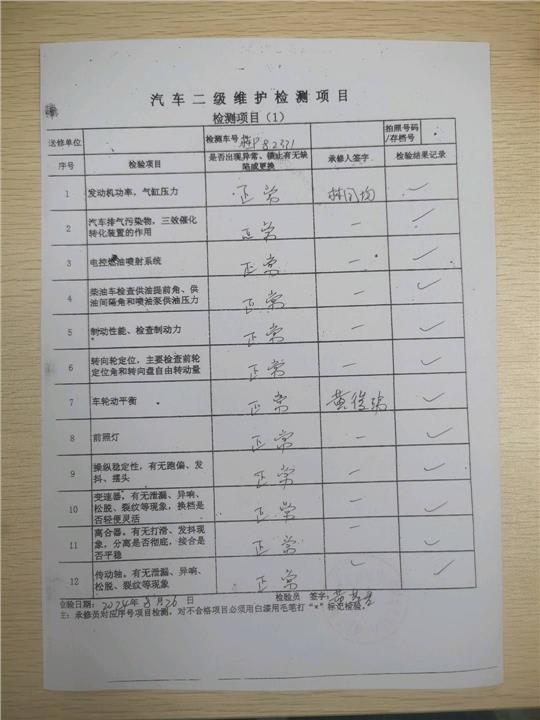 汽车二级维护检测项目
检测项目（1）
送修单位 检测车号 82371 拍照号码/存档号
序号 检验项目 是否出现异常、锁止有无缺陷或更换 承修人签字 检验结果记录
1 发动机功率，气缸压力 正常 ✓
2 汽车排气污染物，三效催化转化装置的作用 正常 — ✓
3 电控燃油喷射系统 正常 — ✓
4 柴油车检查供油提前角、供油间隔角和喷油泵供油压力 正常 — ✓
5 制动性能、检查制动力 正常 — ✓
6 转向轮定位，主要检查前轮定位角和转向盘自由转动量 正常 — ✓
7 车轮动平衡 正常 ✓
8 前照灯 正常 — ✓
9 操纵稳定性，有无跑偏、发抖、摆头 正常 — ✓
10 变速器。有无泄漏、异响、松脱、裂纹等现象，换档是否轻便灵活 正常 — ✓
11 离合器。有无打滑、发抖现象，分离是否彻底，接合是否平稳 正常 — ✓
12 传动轴。有无泄漏、异响、松脱、裂纹等现象 正常 — ✓
验日期：2024年8月26日 检验员 签字：
主：承修员对应序号项目检测，对不合格项目必须用白漆用毛笔打“×”标记检验。